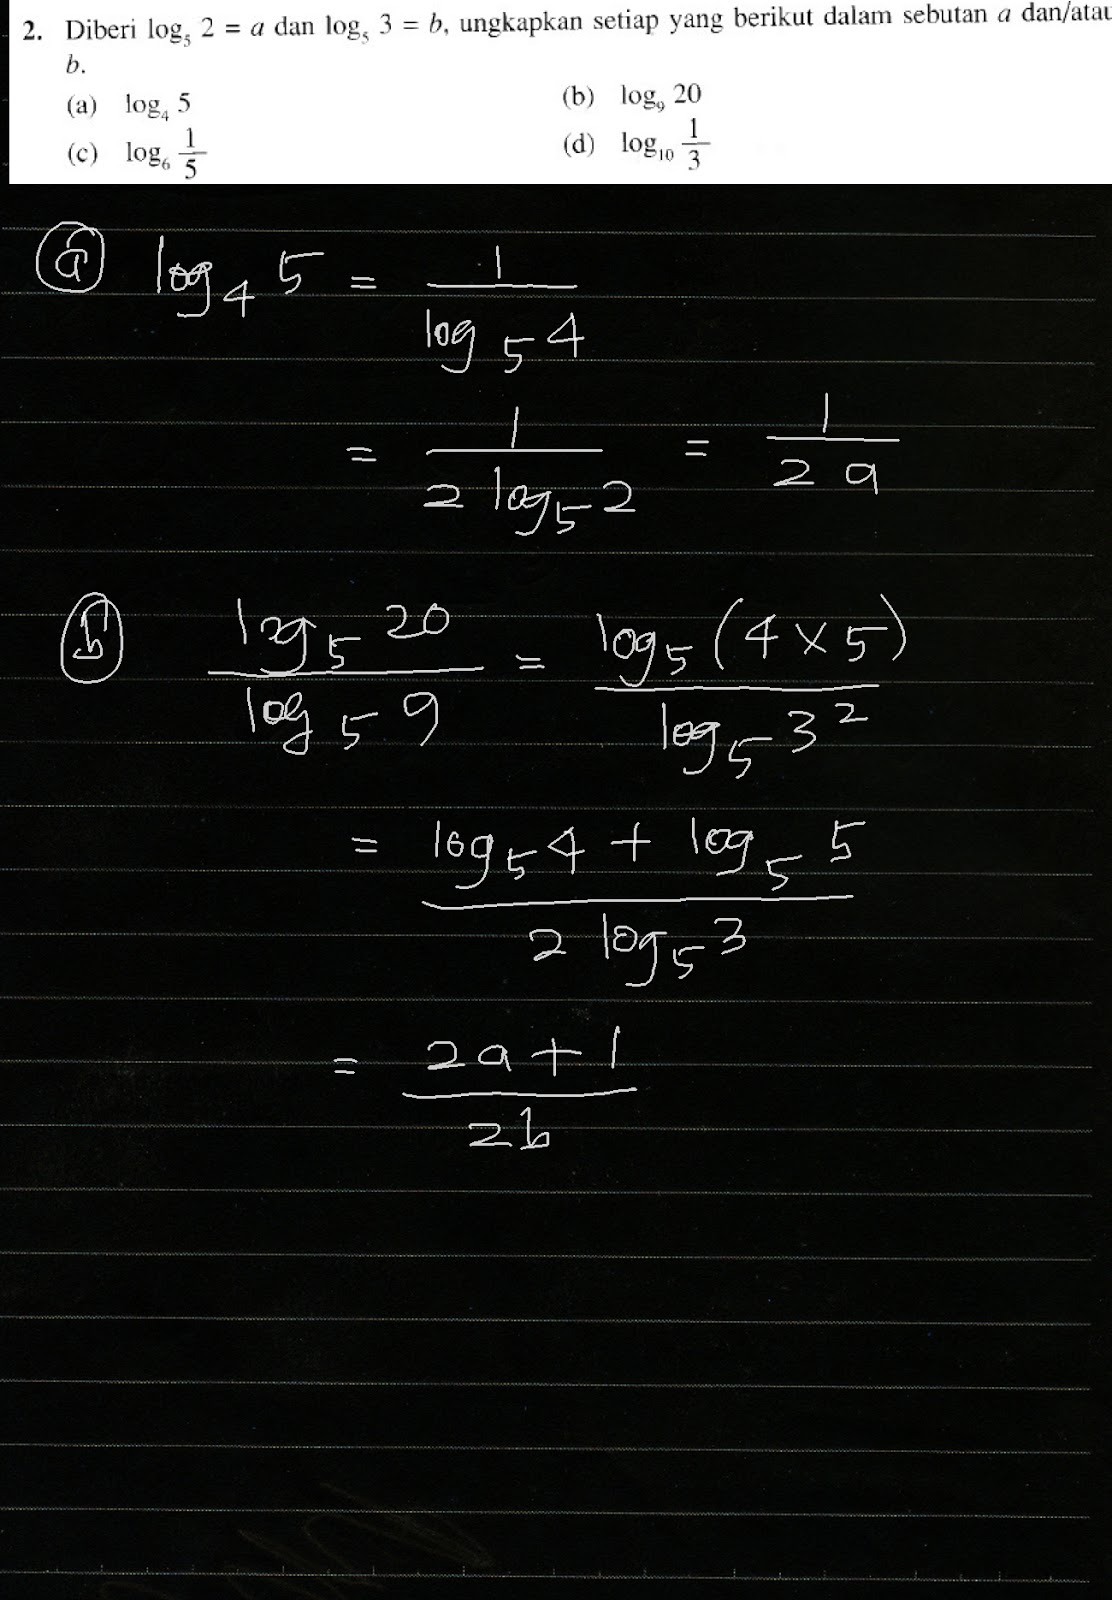 2. Diberi log₅ 2 = a dan log₅ 3 = b, ungkapkan setiap yang berikut dalam sebutan a dan/atau
b.
(a) log₄ 5 (b) log₉ 20
(c) log₆ 1/5 (d) log₁₀ 1/3
(a) log₄ 5 = 1 / log₅ 4
= 1 / 2 log₅ 2 = 1 / 2a
(b) log₅ 20 / log₅ 9 = log₅ (4 × 5) / log₅ 3²
= log₅ 4 + log₅ 5 / 2 log₅ 3
= 2a + 1 / 2b